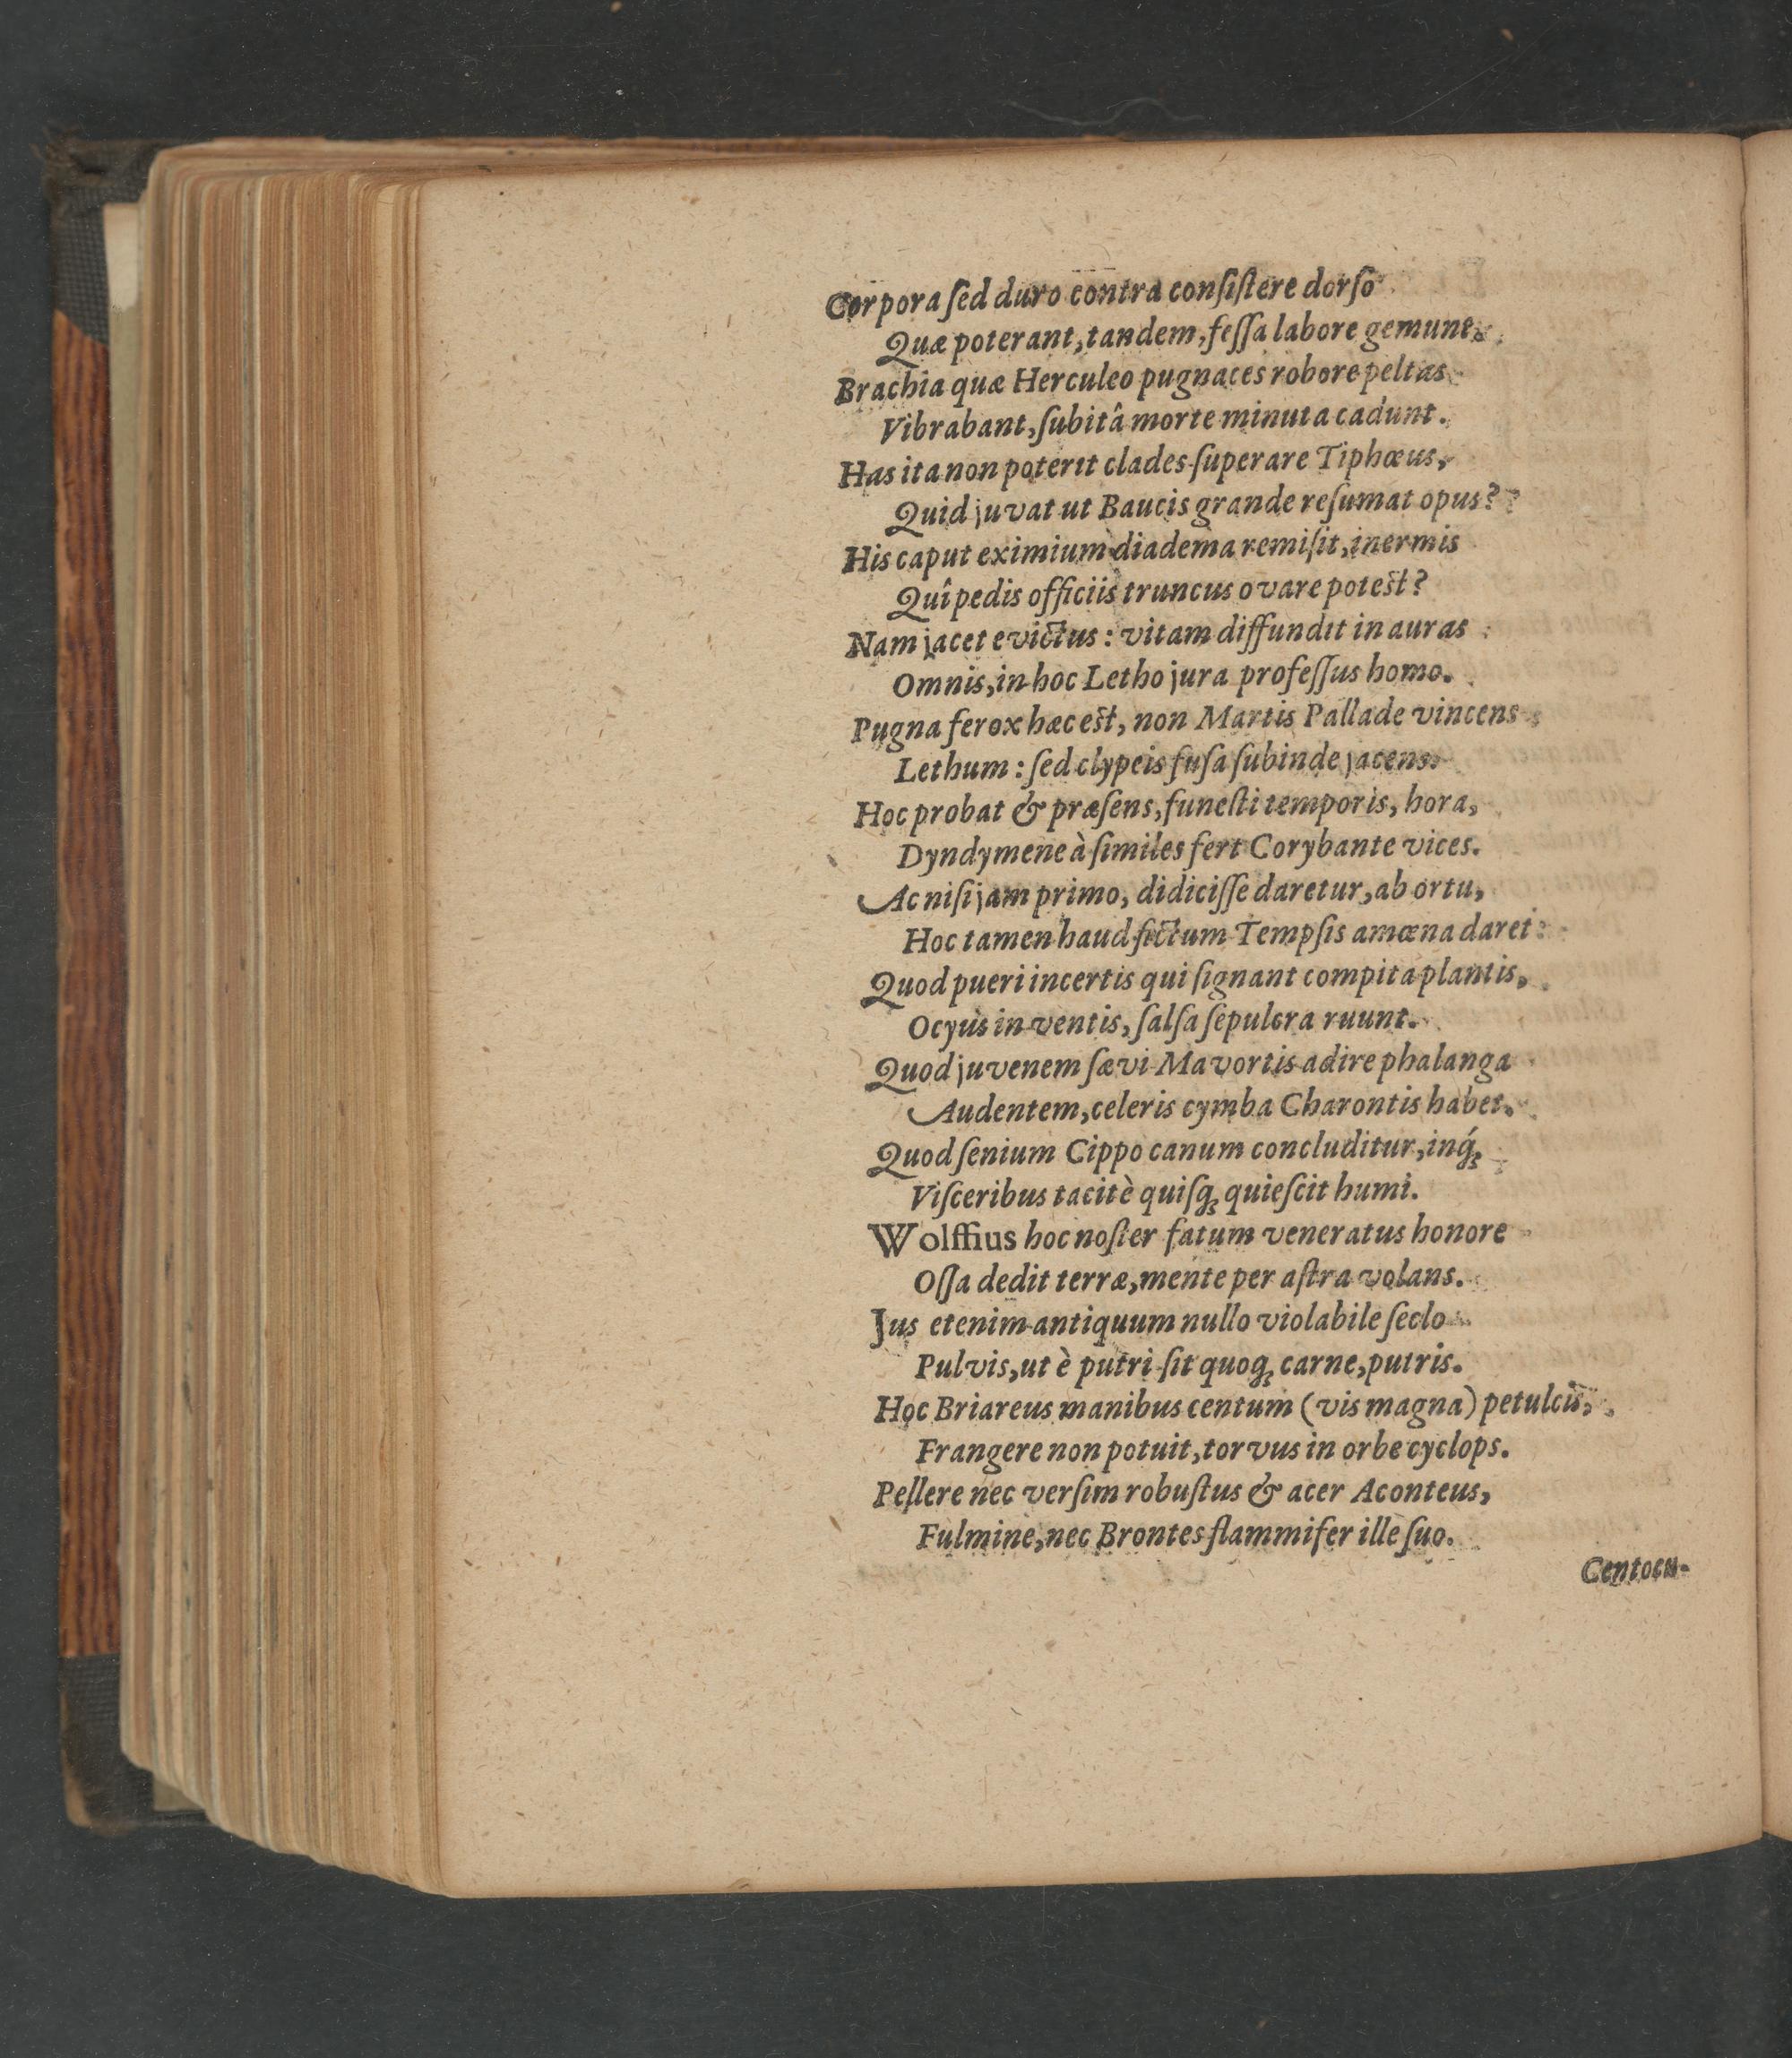 Corpora ſed duro contra conſiſtere dorſo
Quæ poterant, tandem, feſſa labore gemunt,
Brachia quæ Herculeo pugnaces robore peltas
Vibrabant, ſubitâ morte minuta cadunt.
Has ita non poterit clades ſuperare Tiphœus,
Quid juvat ut Baucis grande reſumat opus?
His caput eximium diadema remiſit, inermis
Quî pedis officiis truncus ovare poteſt?
Nam jacet evictus: vitam diffundit in auras
Omnis, in hoc Letho jura profeſſus homo.
Pugna ferox hæc eſt, non Martis Pallade vincens
Lethum: ſed clypeis fuſa ſubinde jacens.
Hoc probat & præſens, funeſti temporis, hora,
Dyndymene à ſimiles fert Corybante vices.
Ac niſi jam primo, didiciſſe daretur, ab ortu,
Hoc tamen haud fictum Tempſis amœna daret:
Quod pueri incertis qui ſignant compita plantis,
Ocyus in ventis, ſalſa ſepulcra ruunt.
Quod juvenem ſævi Mavortis adire phalanga
Audentem, celeris cymba Charontis habet.
Quod ſenium Cippo canum concluditur, inq́ꝫ
Viſceribus tacitè quiſqꝫ quieſcit humi.
Wolffius hoc noſter fatum veneratus honore
Oſſa dedit terræ, mente per aſtra volans.
Jus etenim antiquum nullo violabile ſeclo
Pulvis, ut è putri ſit quoqꝫ carne, putris.
Hoc Briareus manibus centum (vis magna) petulcis,
Frangere non potuit, torvus in orbe cyclops.
Pellere nec verſim robuſtus & acer Aconteus,
Fulmine, nec Brontes flammifer ille ſuo.
Centocu-